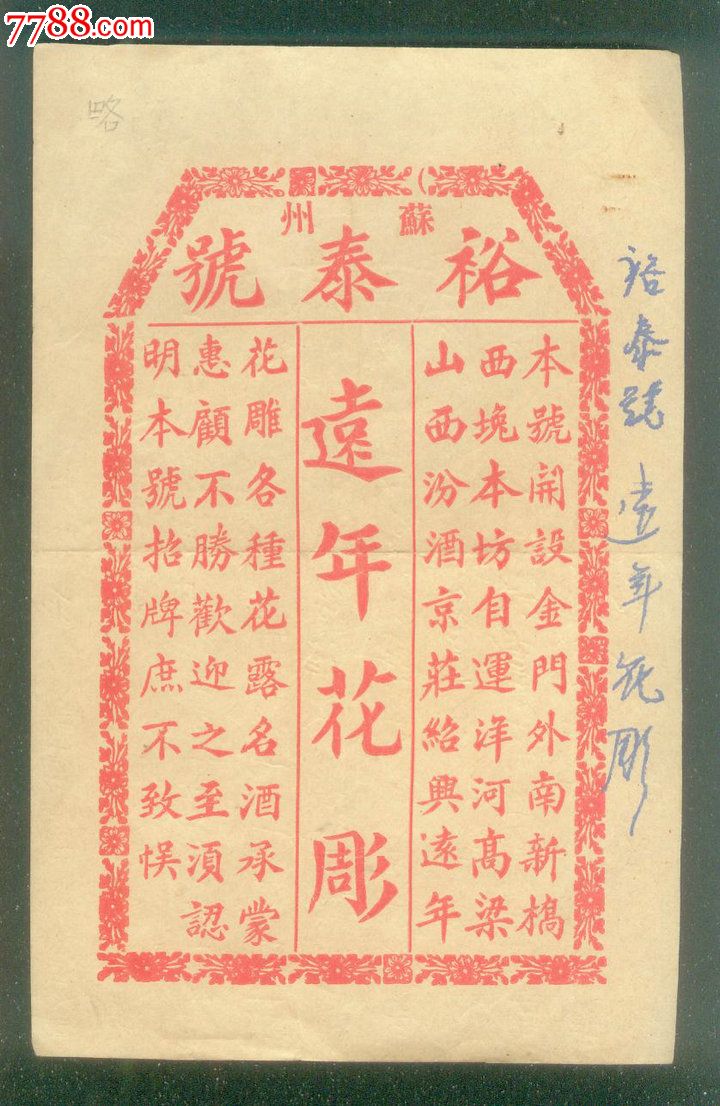 7788.com
蘇州
裕泰號
本號開設金門外南新橋
西堍本坊自運洋河高粱
山西汾酒京莊紹興遠年
遠年花彫
花雕各種花露名酒承蒙
惠顧不勝歡迎之至須認
明本號招牌庶不致悞
裕泰號 遠年花彫